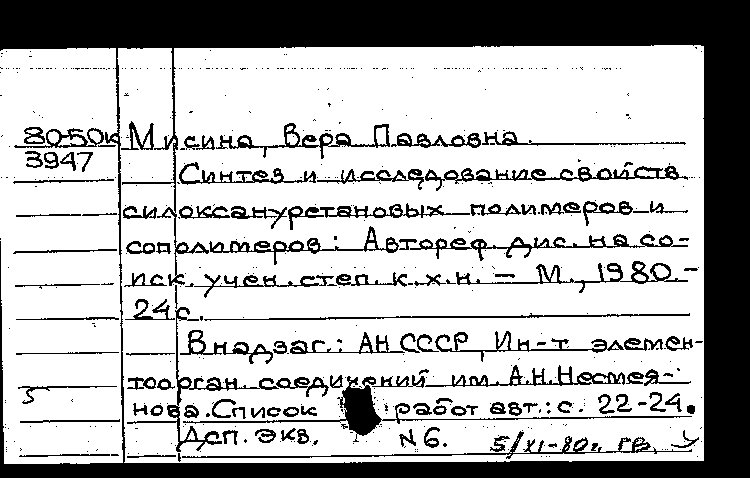 80-50к Мисина, Вера Павловна.
3947
Синтез и исследование свойств
силоксануретановых полимеров и
сополимеров: Автореф. дис. на со-
иск. учен. степ. к.х.н. – М., 1980.-
24с.
В надзаг.: АН СССР, Ин-т элемен-
тоорган. соединений им. А.Н. Несмея-
5
нова. Список работ авт.: с. 22-24.
Дсп. экз. N6. 5/XI-80г.